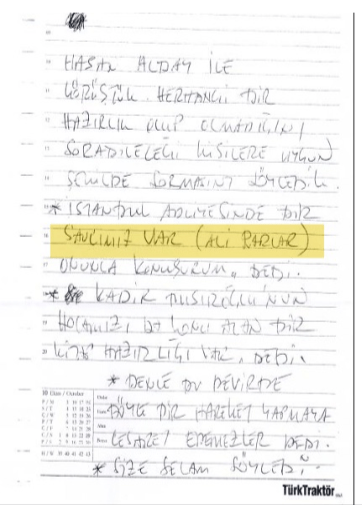 HASAN ALDAY İLE
GÖRÜŞTÜK. HERHANGİ BİR
HAZIRLIK OLUP OLMADIĞINI
SORABİLECEĞİ KİŞİLERE UYGUN
ŞEKİLDE SORMASINI SÖYLEDİK.
* İSTANBUL ADLİYESİNDE BİR
SAVCIMIZ VAR (ALİ PARLAR)
ONUNLA KONUŞURUM, DEDİ.
* KADİR MISIROĞLU'NUN
HOCAMIZI DA KONU ALAN BİR
KİTAP HAZIRLIĞI VAR, DEDİ.
* BENCE BU DEVİRDE
BÖYLE BİR HAREKET YAPMAYA
CESARET EDEMEZLER DEDİ.
* SİZE SELAM SÖYLEDİ.
TürkTraktör